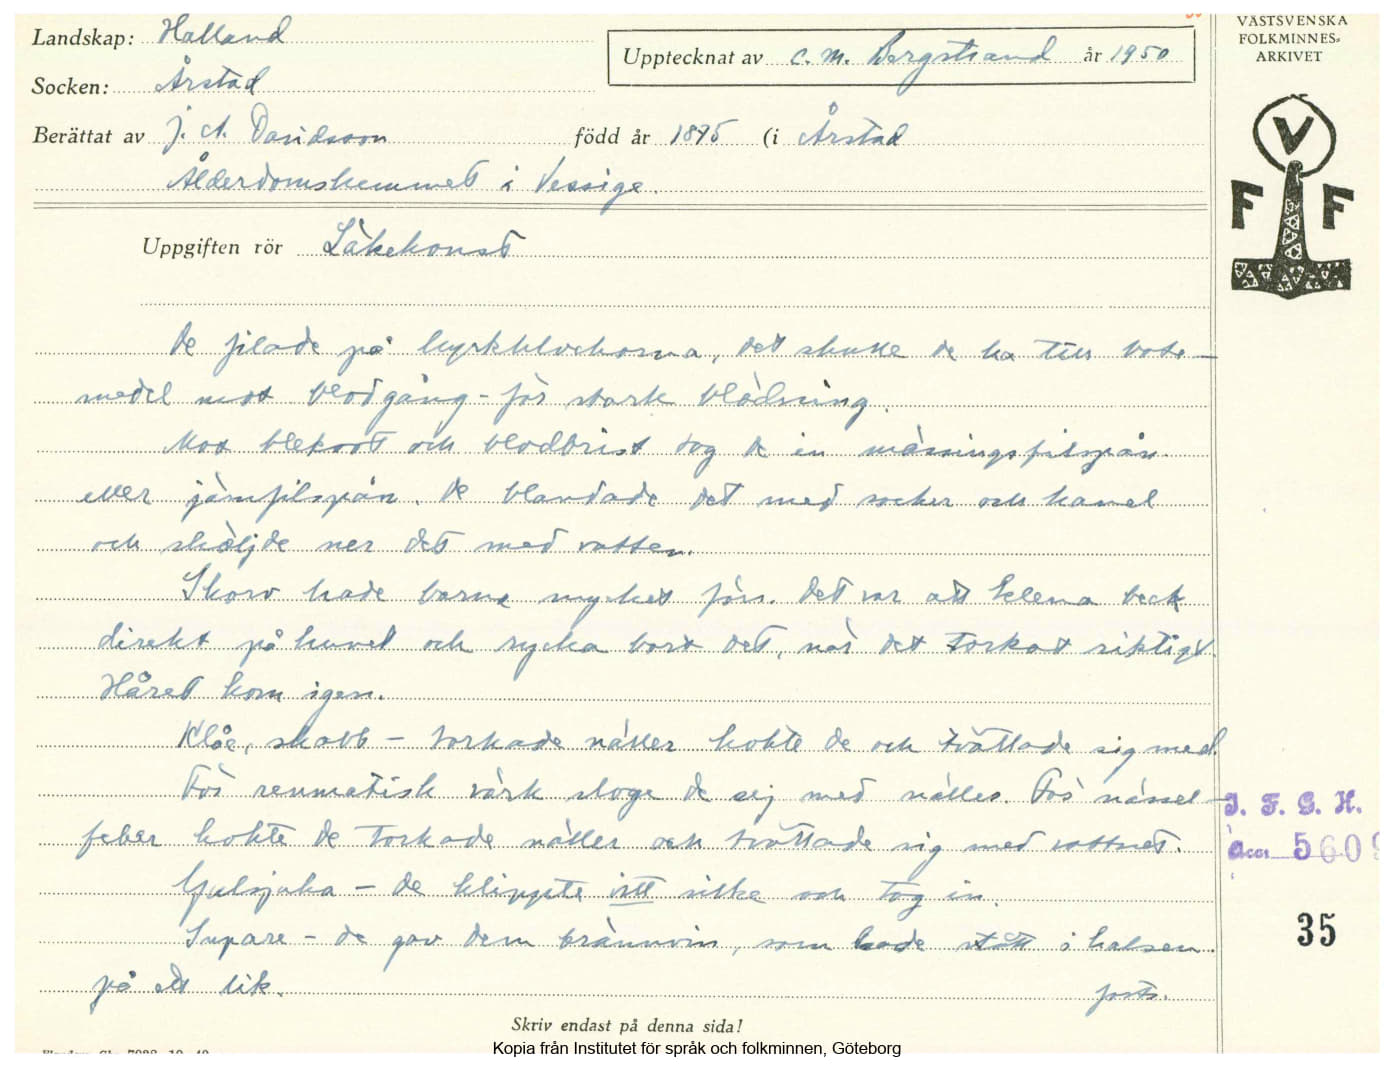 Landskap: Halland
Socken: Årstad
Upptecknat av C. M. Bergstrand år 1950
Berättat av J. A. Davidsson född år 1875 (i Årstad
Ålderdomshemmet i Vessige.
VÄSTSVENSKA
FOLKMINNES-
ARKIVET
V
F F
Uppgiften rör Läkekonst
De filade på kyrkklockorna, det skulle de ha till bote-
medel mot blodgång - för stark blödning.
Mot bleksot och blodbrist tog de in mässingsfilspån
eller järnfilspån. De blandade det med socker och kanel
och sköljde ner det med vatten.
Skorv hade barna mycket förr. Det var att klena beck
direkt på huvet och rycka bort det, när det torkat riktigt.
Håret kom igen.
Klåe, skabb - torkade näller kokte de och tvättade sig med.
För reumatisk värk sloge de sej med nälle. För nässel-
feber kokte de torkade näller och tvättade sig med vattnet.
Gulsjuka - de klippte itt silke och tog in.
Supare - de gav dem brännvin, som hade stått i halsen
på ett lik. forts.
I. F. G. H.
Acc. 5609
35
Skriv endast på denna sida!
Kopia från Institutet för språk och folkminnen, Göteborg